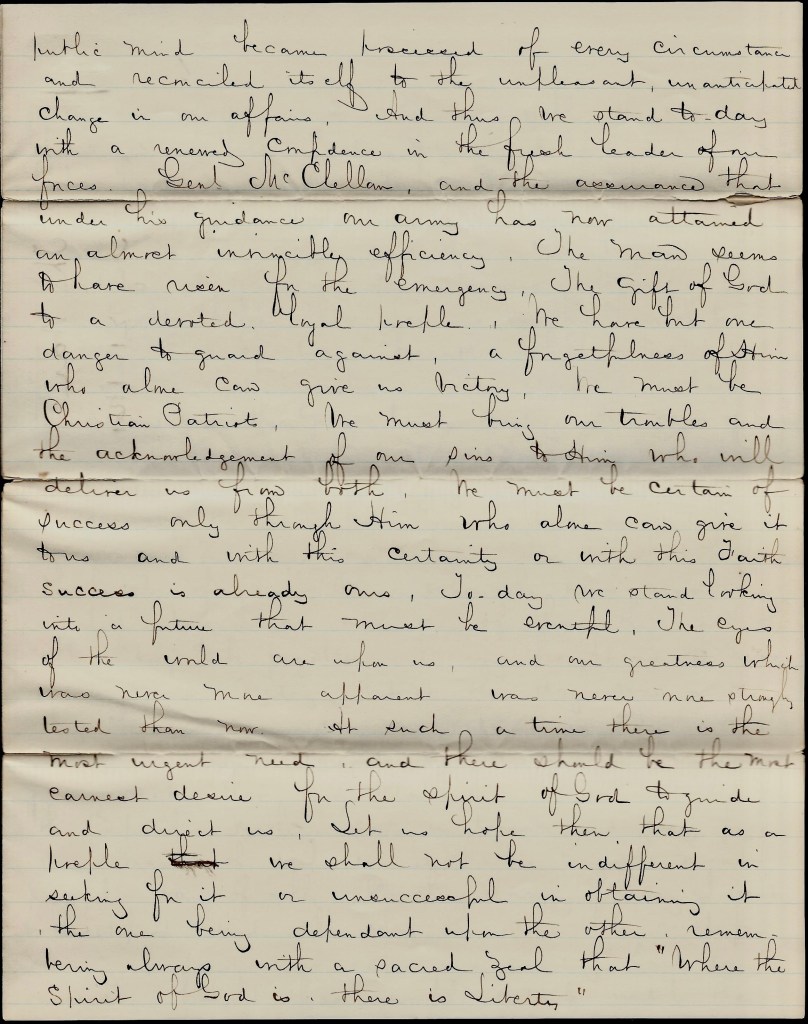 public mind became possessed of every circumstance
and reconciled itself to the unpleasant, unanticipated
change in our affairs. And thus we stand to-day
with a renewed confidence in the fresh leader of our
forces. Genl McClellan, and the assurance that
under his guidance our army has now attained
an almost invincible efficiency. The man seems
to have risen for the emergency. The Gift of God
to a devoted. loyal people. We have but one
danger to guard against, a forgetfulness of Him
who alone can give us Victory. We must be
Christian Patriots. We must bring our troubles and
the acknowledgement of our sins to Him who will
deliver us from both. We must be certain of
success only through Him who alone can give it
to us and with this certainty or with this Faith
success is already ours. To-day we stand looking
into a future that must be eventful. The eyes
of the world are upon us, and our greatness which
was never more apparent was never more strongly
tested than now. At such a time there is the
most urgent need, and there should be the most
earnest desire for the spirit of God to guide
and direct us. Let us hope then that as a
people that we shall not be indifferent in
seeking for it or unsuccessful in obtaining it
, the one being dependant upon the other. remem-
bering always with a sacred zeal that "Where the
Spirit of God is. there is Liberty"